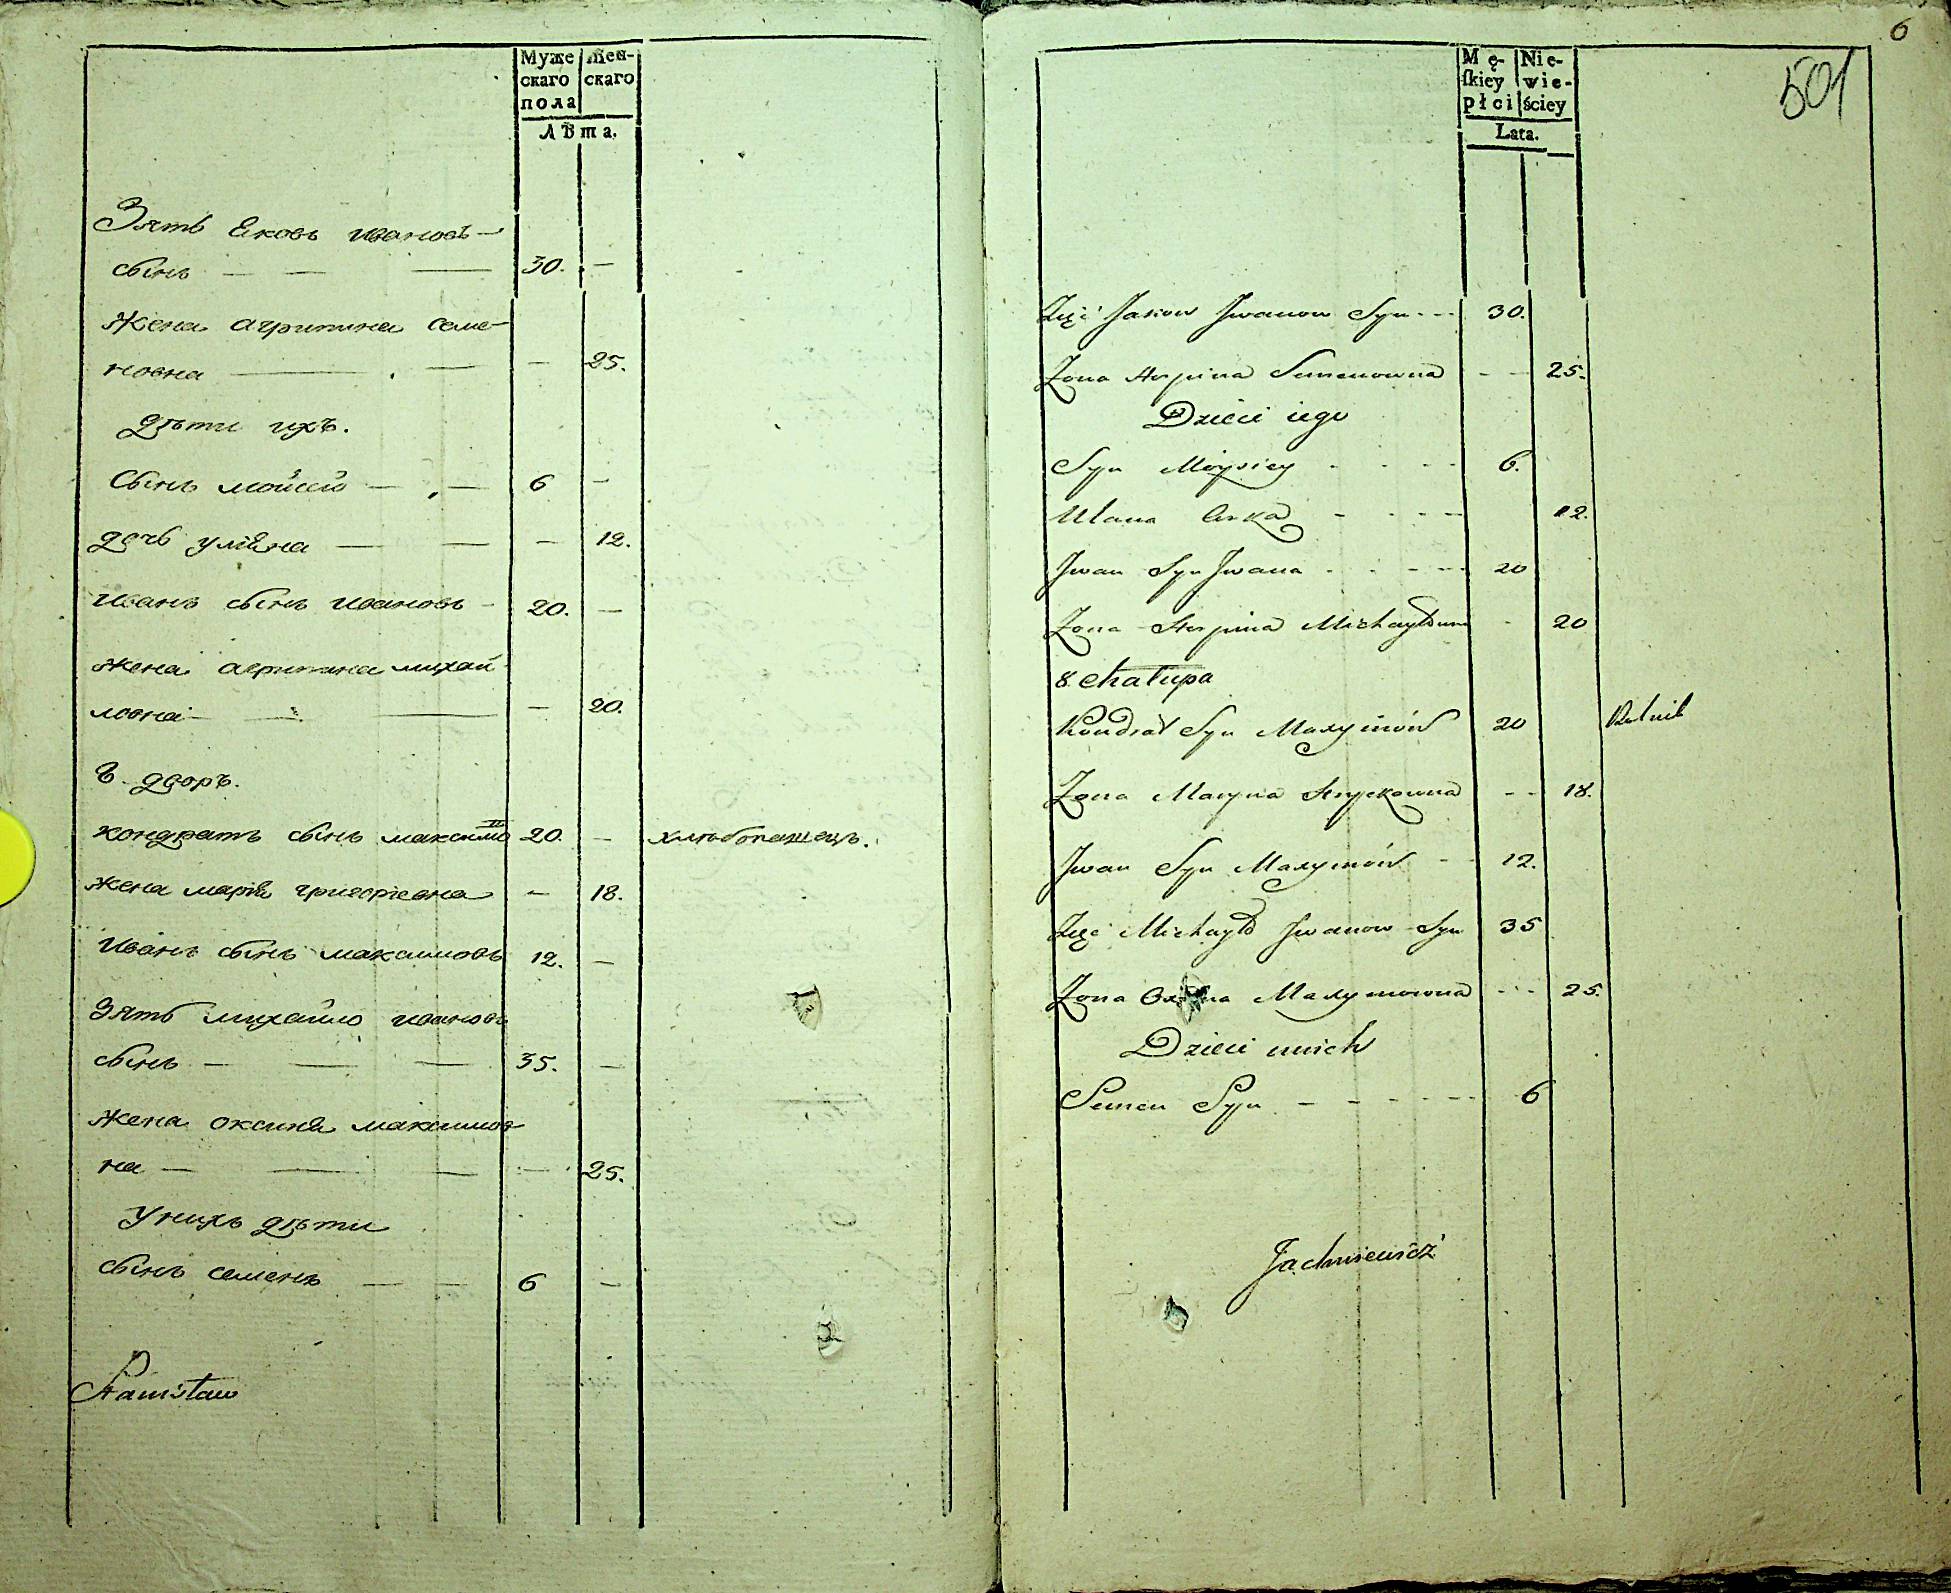 Муже Жен-
скаго скаго
пола
Лѣта.
Зять Яковъ Ивановъ —
сынъ — — — 30. —
Жена агрипина семе-
новна — — — 25.
дѣти ихъ.
Сынъ мойсей — — 6 —
дочь уляна — — — 12.
Иванъ сынъ Ивановъ - 20. —
жена агрипина михай-
ловна — — — — 20.
8. дворъ.
кондратъ сынъ максимо въ 20. — хлѣбопашецъ.
жена марія григоріевна — 18.
Иванъ сынъ максимовъ 12. —
Зять михайло Ивановъ
сынъ — — — 35. —
жена оксиня максимов-
на — — — — 25.
У нихъ дѣти
сынъ семенъ — — 6 —
Stanisław
6
501
Mę- Nie-
ſkiey wie-
płci ściey
Lata.
Zięć Jakow Jwanow Syn - - - 30.
Zona Hrpina Semenowna - - 25.
Dzieci iego
Syn Moysiey - - - - 6.
Ulana Curka - - - - 12.
Jwan Syn Jwana - - - - 20
Zona Hrpina Michayłowna - 20
8. chałupa
Kondrat Syn Maxymów 20 Rolnik
Zona Maryna Hryckowna - - 18.
Jwan Syn Maxymów - - 12.
Zięć Michayło Jwanow Syn 35
Zona Oxana Maxymowna - - - 25.
Dzieci unich
Semen Syn - - - - - - 6
Jachniewicz